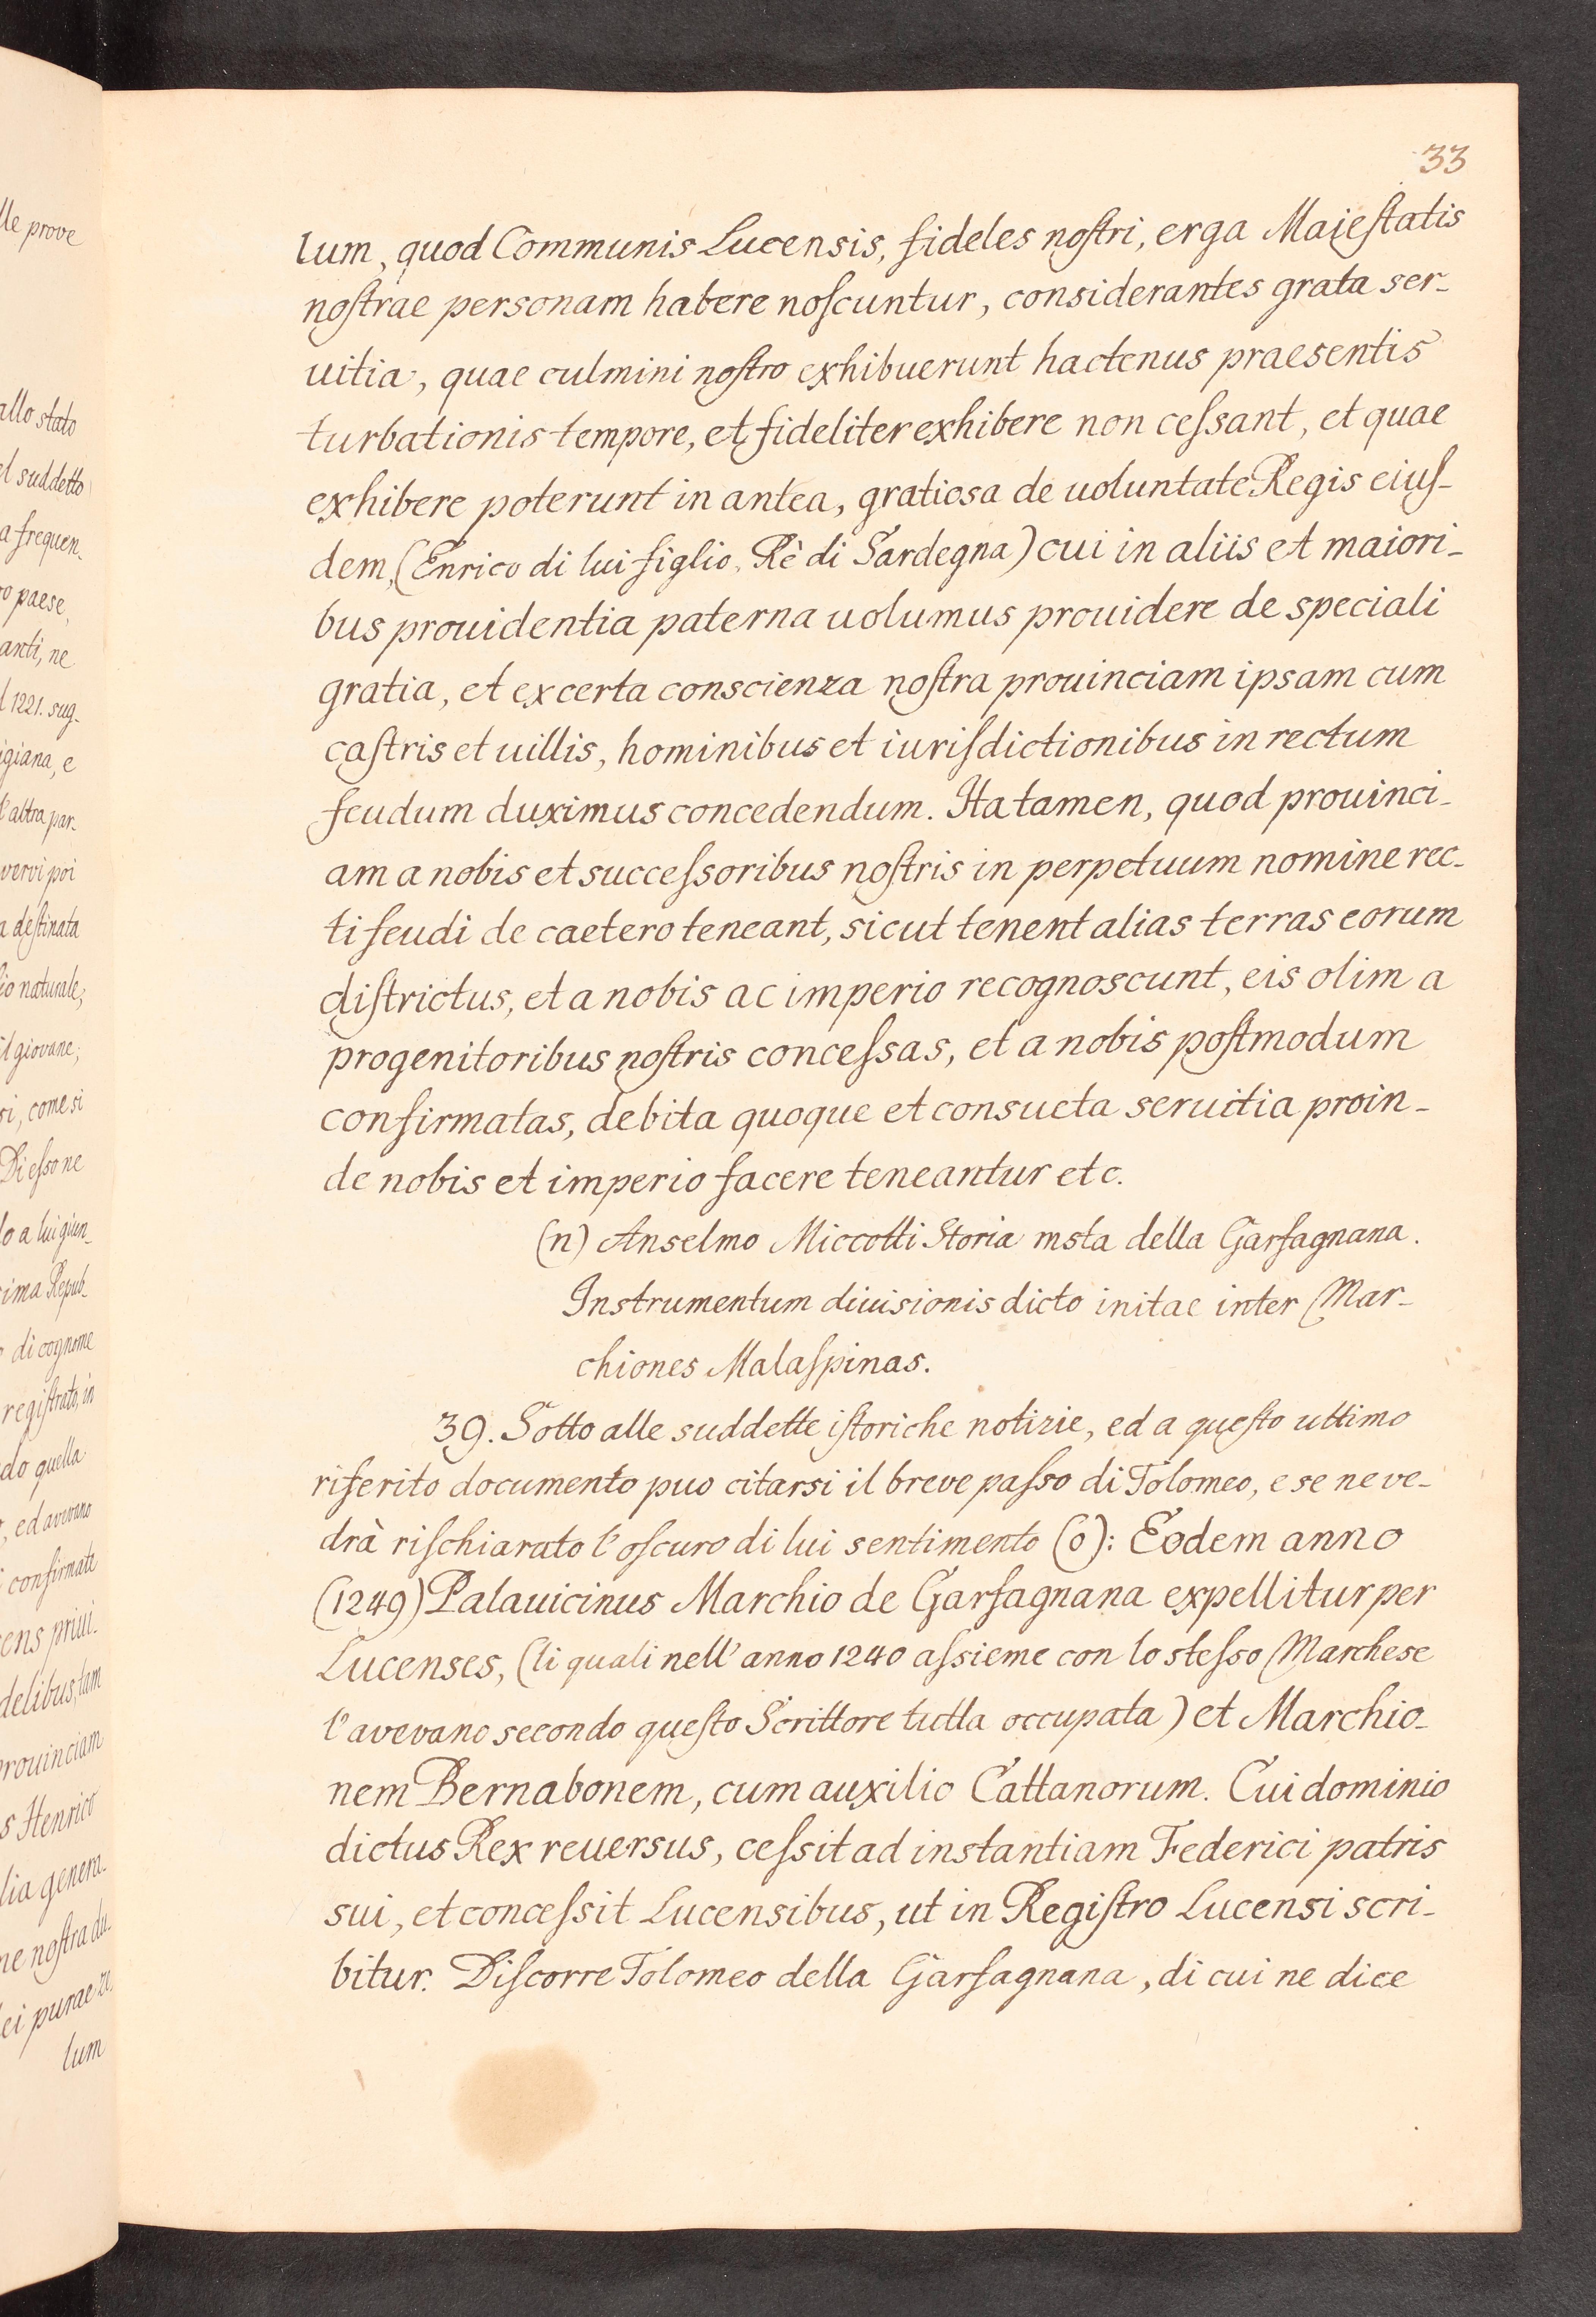 33
lum, quod Communis Lucensis, fideles nostri, erga Maiestatis
nostrae personam habere noscuntur, considerantes grata ser-
uitia, quae culmini nostro exhibuerunt hactenus praesentis
turbationis tempore, et fideliter exhibere non cessant, et quae
exhibere poterunt in antea, gratiosa de uoluntate Regis eius-
dem, (Enrico di lui figlio, Rè di Sardegna) cui in aliis et maiori-
bus prouidentia paterna uolumus prouidere de speciali
gratia, et ex certa conscienza nostra prouinciam ipsam cum
castris et uillis, hominibus et iurisdictionibus in rectum
feudum duximus concedendum. Ita tamen, quod prouinci-
am a nobis et successoribus nostris in perpetuum nomine rec-
ti feudi de caetero teneant, sicut tenent alias terras eorum
districtus, et a nobis ac imperio recognoscunt, eis olim a
progenitoribus nostris concessas, et a nobis postmodum
confirmatas, debita quoque et consueta seruitia proin-
de nobis et imperio facere teneantur etc.
(n) Anselmo Miccotti Storia msta della Garfagnana.
Instrumentum diuisionis dicto initae inter Mar-
chiones Malaspinas.
39. Sotto alle suddette istoriche notizie, ed a questo uttimo
riferito documento puo citarsi il breve passo di Tolomeo, e se ne ve-
drà rischiarato l'oscuro di lui sentimento (o): Eodem anno
(1249) Palauicinus Marchio de Garfagnana expellitur per
Lucenses, (li quali nell'anno 1240 assieme con lo stesso Marchese
l'avevano secondo questo Scrittore tutta occupata) et Marchio-
nem Bernabonem, cum auxilio Cattanorum. Cui dominio
dictus Rex reuersus, cessit ad instantiam Federici patris
sui, et concessit Lucensibus, ut in Registro Lucensi scri-
bitur. Discorre Tolomeo della Garfagnana, di cui ne dice
lle prove
allo stato
el suddetto
a frequen-
ro paese,
anti, ne
l 1221. sug-
igiana, e
l'altra par-
vervi poi
a destinata
io naturale;
il giovane;
si, come si
Di esso ne
lo a lui giun-
sima Repub-
di cognome
registrato, in
do quella
, ed avevano
confirmate
cens priui-
delibus, tam
prouinciam
s Henrico
lia genera-
ne nostra du-
ei purae ze-
lum